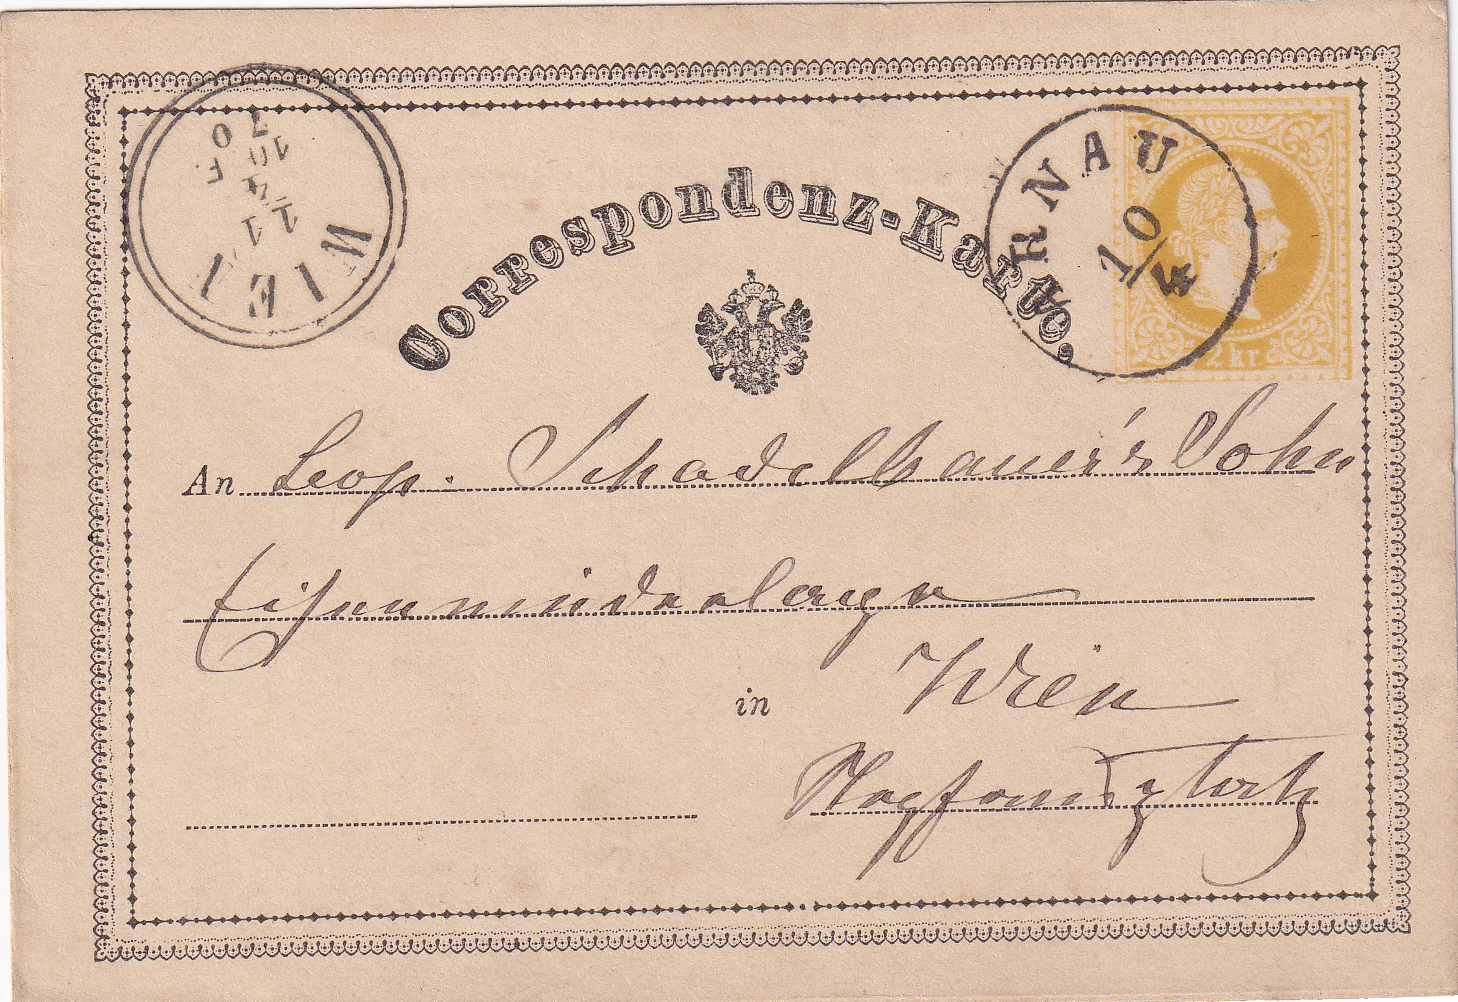 WIEN
11
4
10
F.
70
Correspondenz-Karte.
ARNAU
10/4
2 kr.
An Leop. Schadelbauer's Sohn
Eisenniederlage
in Wien